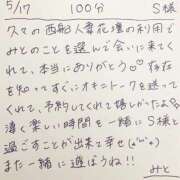 5/17 100分 S様
久々の西船人妻花壇の利用で
みとのことを選んで会いに来てく
れて、本当にありがとう♡♡ 存在
を知ってすぐにオキニトークを送ってく
れて、予約してくれて嬉しかったよ
濃く楽しい時間を一緒にS様と
過ごすことが出来て幸せ(*´ω`*)
また一緒に遊ぼうね!!
みと